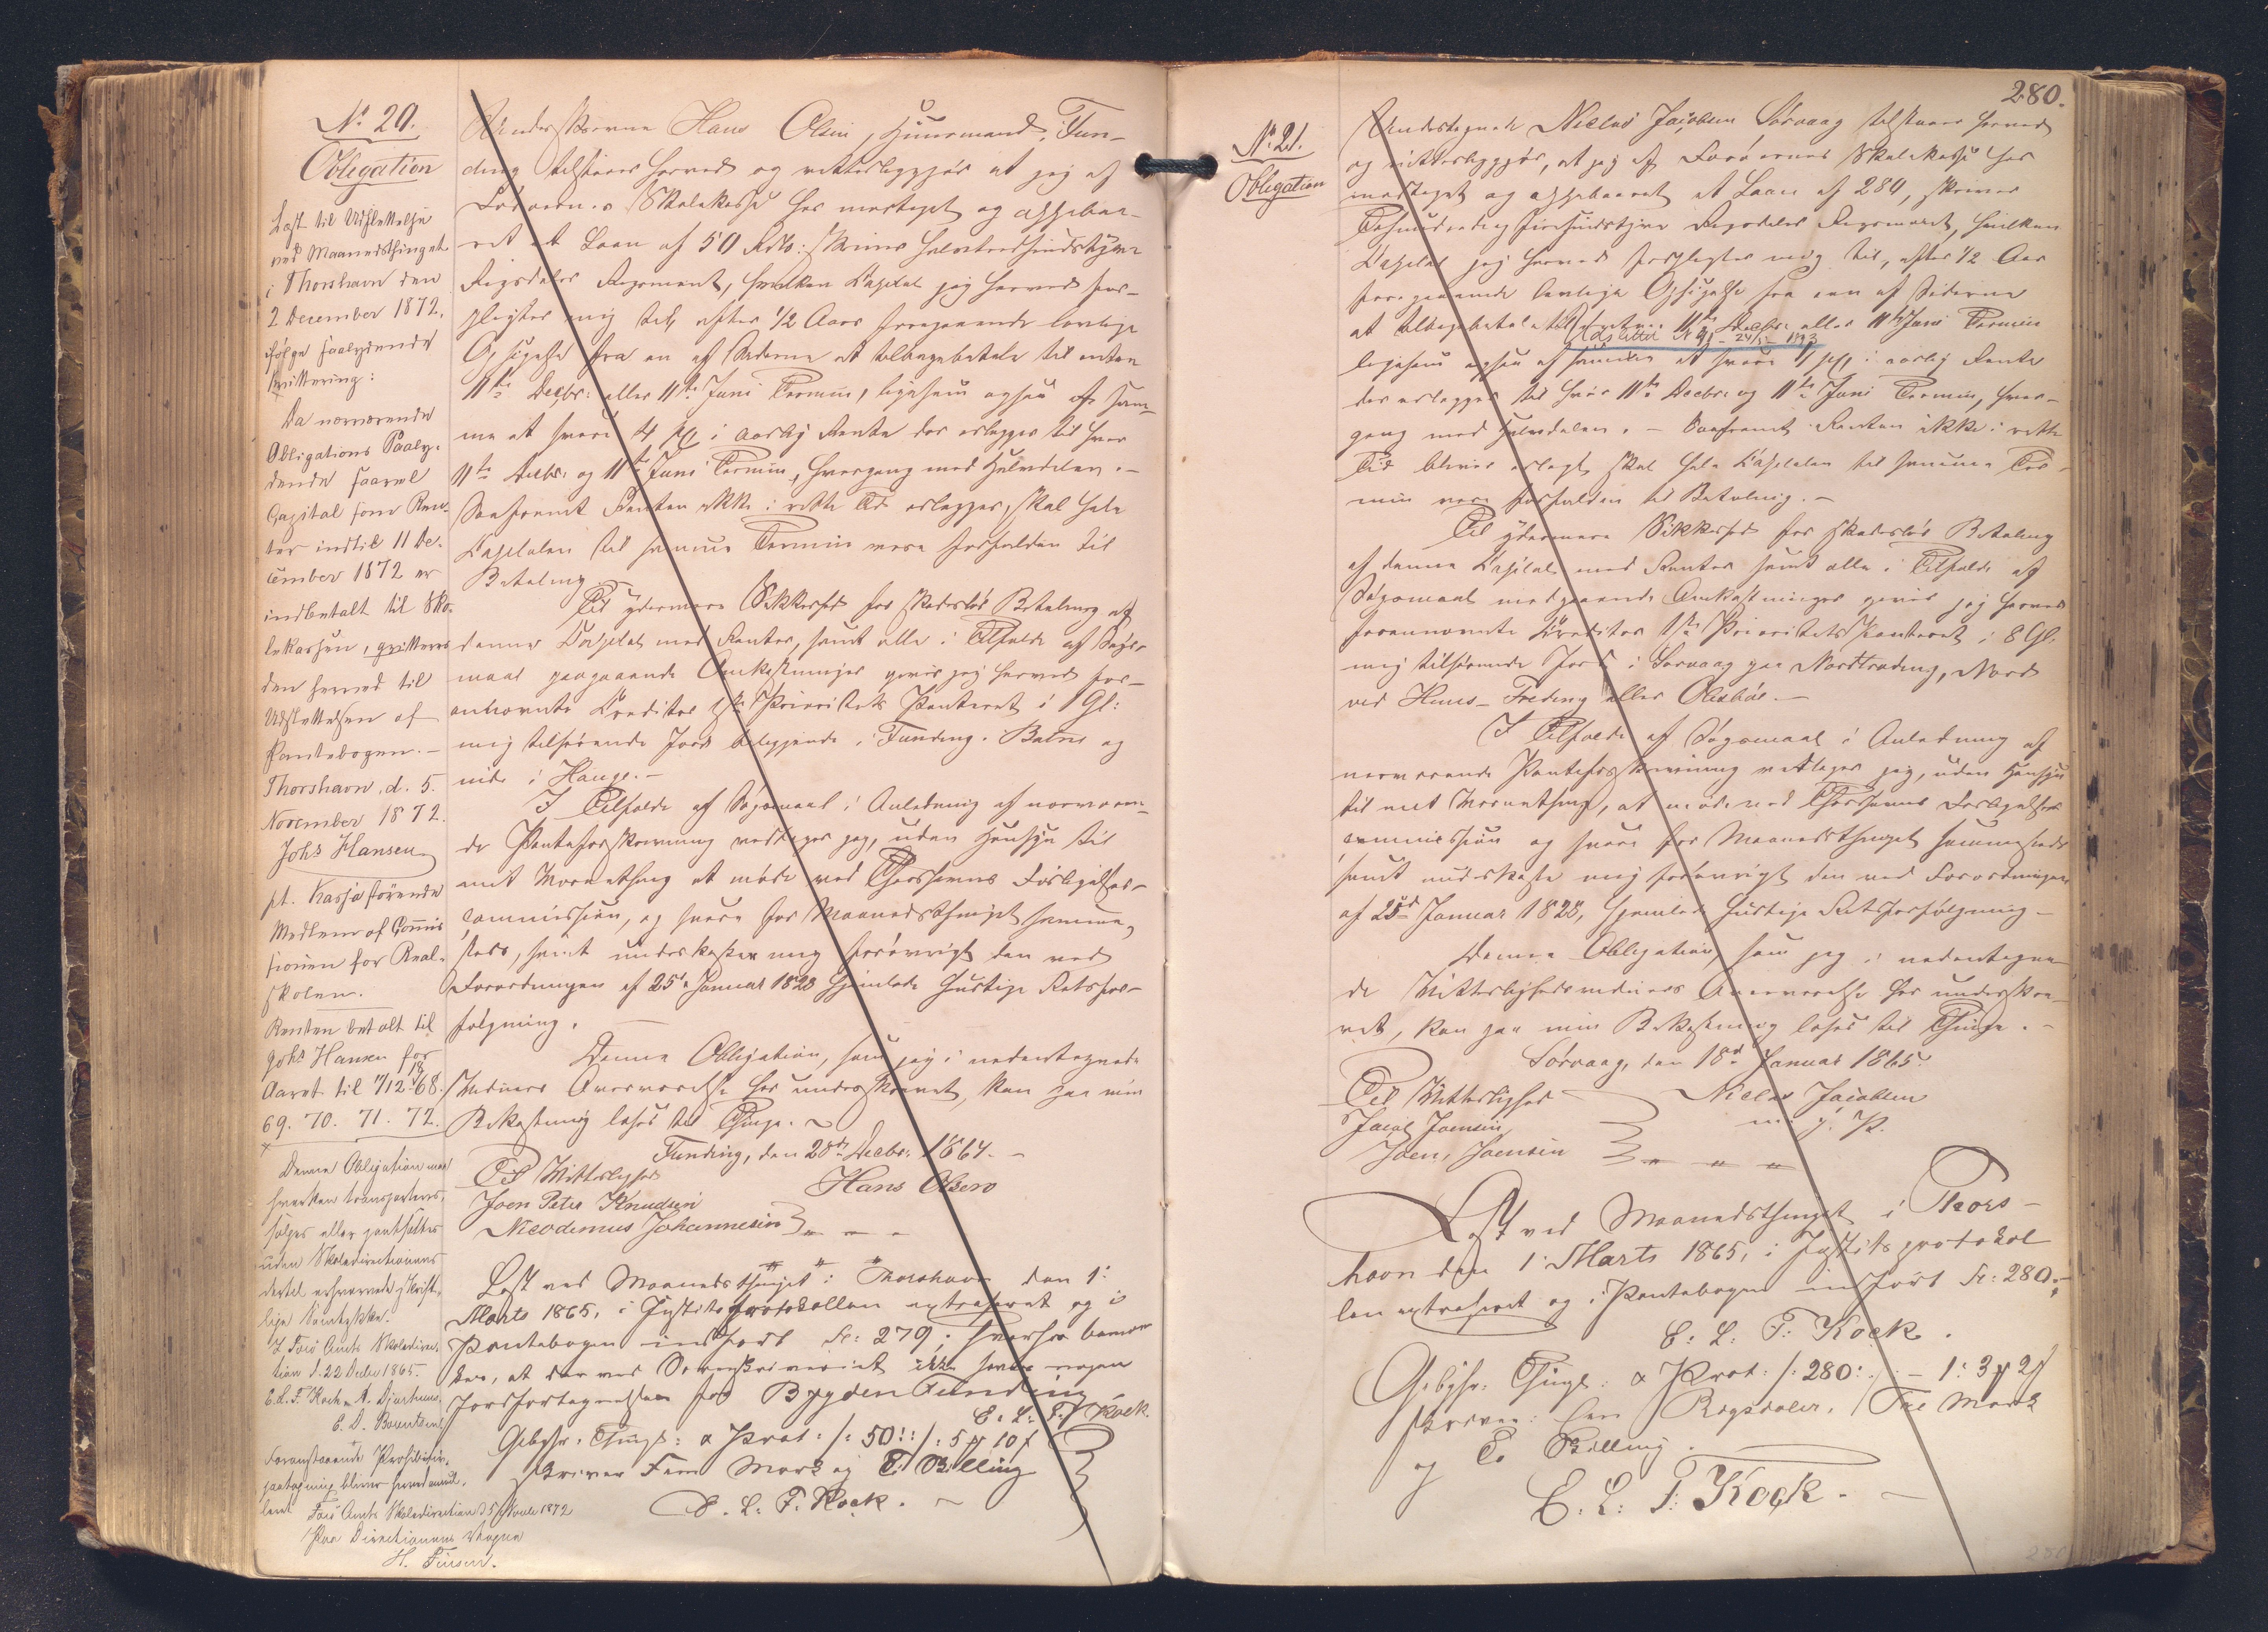 No 20.
Obligation
Læst til Udslettelse
ved Maanedsthinget
i Thorshavn den
2 December 1872,
ifølge saalydende
Kvittering:
Da nærværende
Obligations Paaly-
dende saavel
Capital som Ren-
ter indtil 11 De-
cember 1872 er
indbetalt til Sko-
lekassen, qvitteres
den herved til
Udslettelsen af
Pantebogen.-
Thorshavn, d. 5.
November 1872.
Johs Hansen
pt. Kassaførende
Medlem af Commis
sionen for Real-
skolen.
Renten betalt til
Johs Hansen for
Aaret til 11/12 18 68.
69. 70. 71. 72.
Denne Obligation maa
hverken transporteres,
sælges eller pantsættes
uden Skoledirectionens
dertil erhvervede skrift-
lige Samtykke.
Færø Amts Skoledirec-
tion d. 22 1865.
E.L.F. Kock
Foranstaaende
bliver herved annul-
leret
Færø Amts Skoledirection d 5 Novbr 1872
Paa Directionens Vegne
H. Finsen.
Underskrevne Hans Olsen, Huusmand, Fun-
ding tilstaaer herved og vitterliggjør at jeg af
Færøernes Skolekasse har modtaget og oppebaa-
ret et Laan af 50 Rdlr: skriver halvtredsindstyve
Rigsdaler Rigsmønt, hvilken Kapital jeg herved for-
pligter mig til, efter 1/2 Aars foregaaende lovlige
Opsigelse fra en af Siderne at tilbagebetale til enten
11te Decbr: eller 11te Juni Termin, ligesom ogsaa af sam-
me at svare 4 pCt i aarlig Rente der erlægges til hver
11te Decbr. og 11te Juni Termin, hvergang med Halvdelen.-
Saafremt Renten ikke i rette Tid erlægges, skal hele
Kapitalen til samme Termin være forfalden til
Betaling.
Til ydermere Sikkerhed for skadesløs Betaling af
denne Kapital med Renter, samt alle i Tilfælde af Søgs-
maal paagaaende Omkostninger giver jeg herved for-
annævnte Creditor 1ste Prioritets Panteret i 1 Gl:
mig tilhørende Jord beliggende i Funding. Bølne og
nide i Hauge.-
I Tilfælde af Søgsmaal i Anledning af nærværen-
de Panteforskrivning vedtager jeg, uden Hensyn til
mit Værnething at møde ved Thorshavns Forligelses-
commission, og svare for Maanedsthinget samme-
steds, samt underkaster mig forøvrigt den ved
Forordningen af 25de Januar 1828 hjemlede hurtige Retsfor-
følgning.
Denne Obligation, som jeg i nedentegnede
Vidners Overværelse har underskrevet, kan paa min
Bekostning læses til Thinge.
Funding, den 28de Decbr. 1864.-
Til Vitterlighed Hans Olsen
Joen Peter Knudsen
Nicodemus Johannesen
Læst ved Maanedsthinget i Thorshavn den 1'
Marts 1865, i Justitsprotokollen extraheret og i
Pantebogen indført Fol: 279; hvorhos bemær-
kes, at der ved Sorenskriveriet ikke haves nogen
Jordfortegnelse for Bygden Funding
E: L: F: Kock.
Gebyhr. Thingl: & Prot: /: 50:/: 5 10
skriver Fem Mark og Ti Skilling
E. L: F: Kock.
280.
No 21.
Obligation
Undertegnede Niclas Jacobsen Sørvaag tilstaaer herved
og vitterliggjør, at jeg af Færøernes Skolekasse har
modtaget og oppebaaret et Laan af 280, skriver
Tohundrede og Rigsdaler Rigsmønt, hvilken
Kapital jeg herved forpligter mig til, efter 1/2 Aars
foregaaende lovlige Opsigelse fra een af Siderne
at tilbagebetale til enten 11te Decbr. eller 11te Juni Termin
Udslettet No 9 - 24/5 - 1893
ligesom ogsaa af samme at svare 4 pCt i aarlig Rente
der erlægges til hver 11te Decbr. og 11te Juni Termin, hver-
gang med Halvdelen.- Saafremt Renten ikke i rette
Tid bliver erlagt, skal hele Kapitalen til samme Ter-
min være forfalden til Betaling.-
Til ydermere Sikkerhed for skadesløs Betaling
af denne Kapital med Renter samt alle i Tilfælde af
Søgsmaal medgaaende Omkostninger giver jeg herved
forannævnte Kreditor 1ste Prioritets Panteret i 8 Gl.
mig tilhørende Jord i Sørvaag paa Nordtrøding, Nord
ved Huus- Trøding eller Olesbøe.-
I Tilfælde af Søgsmaal i Anledning af
nærværende Panteforskrivning vedtager jeg, uden Hensyn
til mit Værnething, at møde ved Thorshavns Forligelses
commission og svare for Maanedsthinget sammesteds
samt underkaste mig forøvrigt den ved Forordningen
af 25d Januar 1828, hjemlede hurtige Retsforfølgning.-
Denne Obligation, som jeg i nedentegne-
de Vitterlighedsvidners Overværelse har underskre-
vet, kan paa min Bekostning læses til Thinge.-
Sørvaag, den 18d Januar 1865.
Til Vitterlighed Niclas Jacobsen
Jacob Joensen m. f. P.
Joen, Joensen
Læst ved Maanedsthinget i Thors-
havn den 1' Marts 1865, i Justitsprotokol
len extraheret og i Pantebogen indført Fol: 280.-
E: L: F: Kock.
Gebyhr. Thingl: & Prot: /: 280:/: - 1: 3 2
skriver: Een Rigsdaler, Tre Mark
og To Skilling.
E. L: F: Kock.-